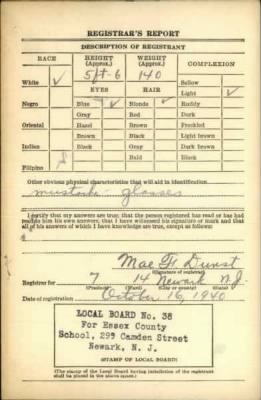 REGISTRAR'S REPORT
DESCRIPTION OF REGISTRANT
RACE HEIGHT (Approx.) WEIGHT (Approx.) COMPLEXION
5 ft-6 140
White ✓ Sallow
EYES HAIR Light ✓
Negro Blue ✓ Blonde ✓ Ruddy
Gray Red Dark
Oriental Hazel Brown Freckled
Brown Black Light brown
Indian Black Gray Dark brown
Bald Black
Filipino
Other obvious physical characteristics that will aid in identification
mustache - glasses
I certify that my answers are true; that the person registered has read or has had
read to him his own answers; that I have witnessed his signature or mark and that
all of his answers of which I have knowledge are true, except as follows:
Mae F. Dunst
(Signature of registrar)
Registrar for 7 14 Newark N.J.
(Precinct) (Ward) (City or county) (State)
Date of registration October 16, 1940
LOCAL BOARD No. 38
For Essex County
School, 299 Camden Street
Newark, N. J.
(STAMP OF LOCAL BOARD)
(The stamp of the Local Board having jurisdiction of the registrant
shall be placed in the above space.)